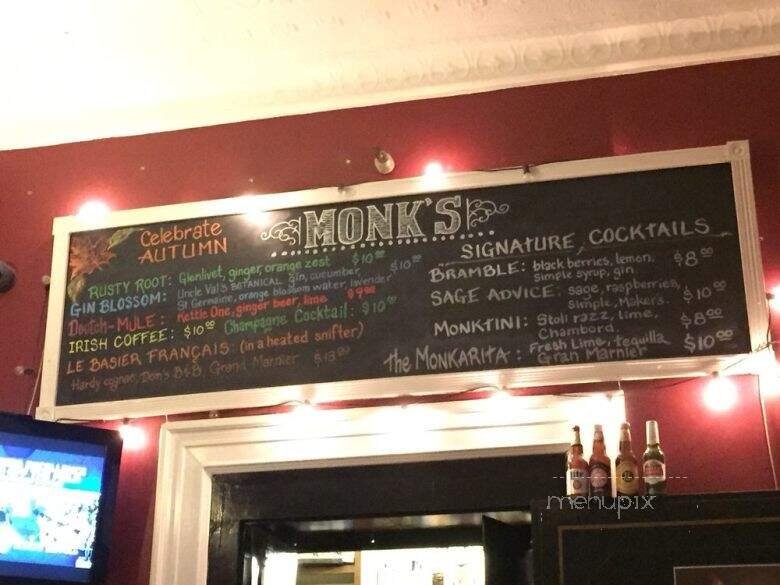 MONK'S
Celebrate
AUTUMN
RUSTY ROOT: Glenlivet, ginger, orange zest $10.00
GIN BLOSSOM: Uncle Val's BOTANICAL gin, cucumber, $10.00
St Germaine, orange blossom water, lavender
Deutch-MULE: Kettle One, ginger beer, lime $9.00
IRISH COFFEE: $10.00 Champagne Cocktail: $10.00
LE BASIER FRANÇAIS: (in a heated snifter)
Hardy cognac, Dom's B&B, Grand Marnier $13.00
SIGNATURE COCKTAILS
BRAMBLE: black berries, lemon, $8.00
Simple syrup, gin
SAGE ADVICE: sage, raspberries, $10.00
Simple, Makers.
MONKTINI: Stoli razz, lime, $8.00
Chambord.
the MONKARITA: Fresh Lime, tequilla $10.00
Gran Marnier
lite
menupix